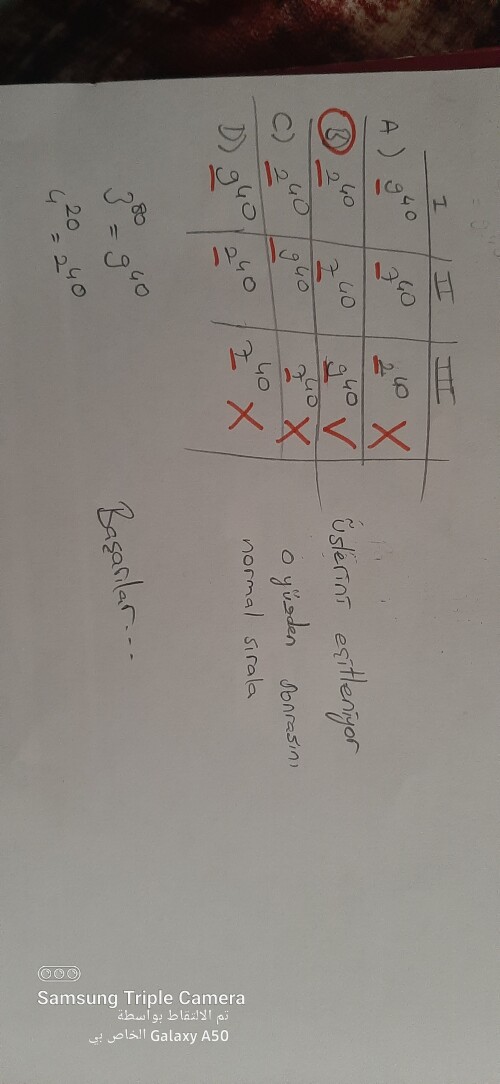 I II III
A) 9⁴⁰ 7⁴⁰ 2⁴⁰ X
B) 2⁴⁰ 7⁴⁰ 9⁴⁰ V
C) 2⁴⁰ 9⁴⁰ 7⁴⁰ X
D) 9⁴⁰ 2⁴⁰ 7⁴⁰ X
3⁸⁰ = 9⁴⁰
4²⁰ = 2⁴⁰
üslerini eşitleniyor
o yüzden sonrasını
normal sırala
Başarılar...
Samsung Triple Camera
تم الالتقاط بواسطة
الخاص بي Galaxy A50